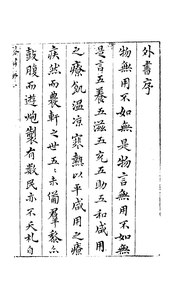 外書序
物無用不如無是物言無用不如無
是言五養五滋五充五助五和咸用
之療飢溫涼寒熱以平咸用之療
疾然而農軒之世五五未備羣黎亦
鼓腹而遊炮製有數民亦不夭札自